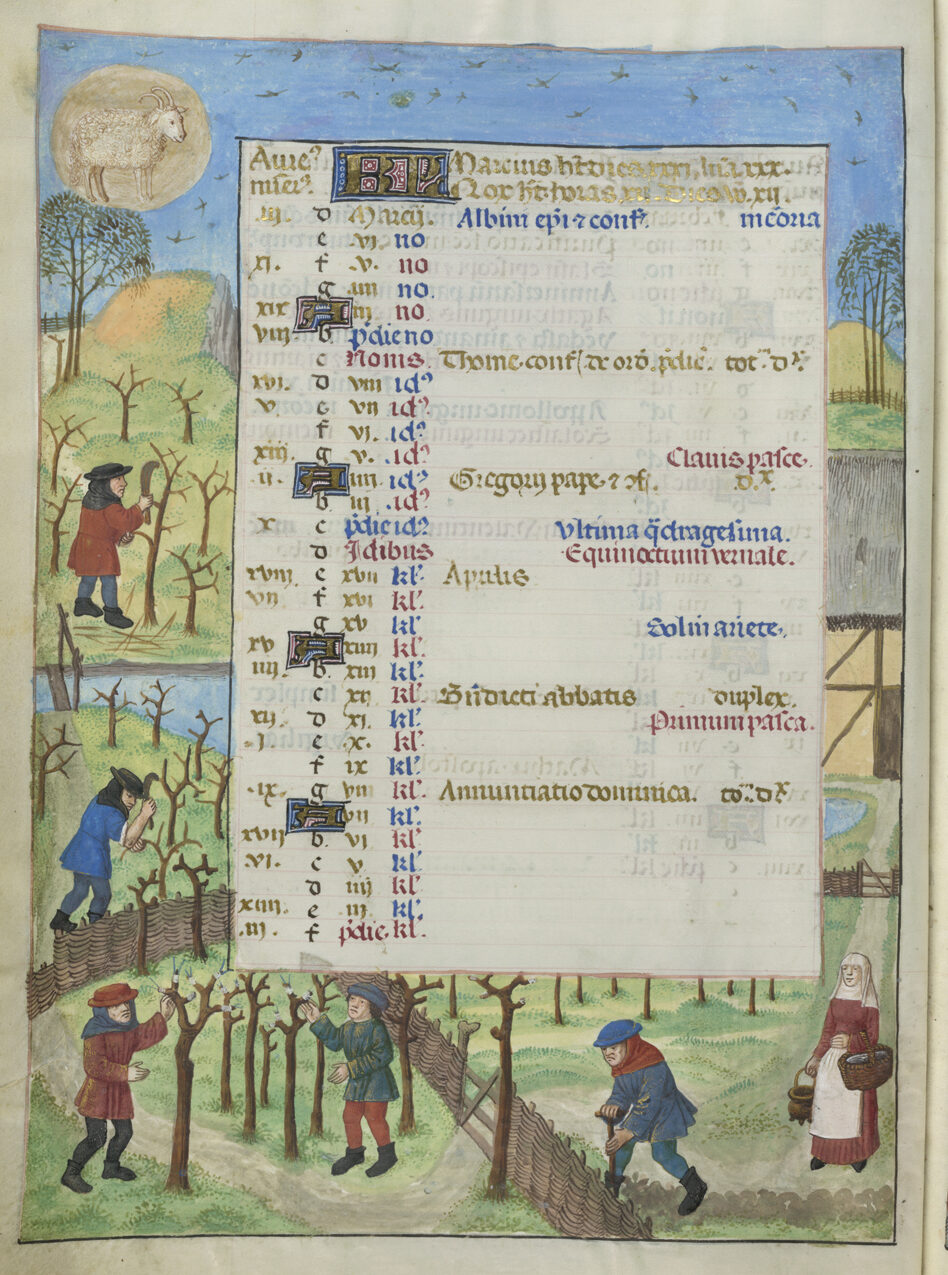 Aure⁹ KL Marcius ht dies xxxi. luā xxx.
nūeri⁹. Nox ht horas xii. Dies vo xii
.iii. d Marcij. Albini ep̄i ⁊ conf. memoria
e vi no
xi. f .v. no
g iiii no.
xix A iii no
viii. b p'die no
c Nonis. Thome. conf. de ord. p̄dic. tot d̄x
xvi. d viii id⁹
v. e vii id⁹
f vi. id⁹
xiii. g v. id⁹ Clavis pasce.
.ii. A iiii id⁹ Gregorij pape. ⁊ d̄x.
b iii id⁹
x c p'die id⁹ Vltima q̄dragesima.
d Idibus Equinoctium vernale.
xviii. e xvii kl'. Aprilis
vii. f xvi kl'.
g xv kl' Sol in ariete.
xv A xiiii kl'.
iiii. b xiii kl'.
c xii kl'. Bn̄dicti abbatis duplex.
xii. d xi. kl'. Primum pasca.
.i. e x. kl'.
f ix kl'.
.ix. g viii kl'. Annunciatio dominica. to d̄x
A vii kl'.
xvii b. vi kl'.
vi. c v. kl'.
d iiii kl'.
xiiii. e iii kl'.
.iii. f p'die. kl'.